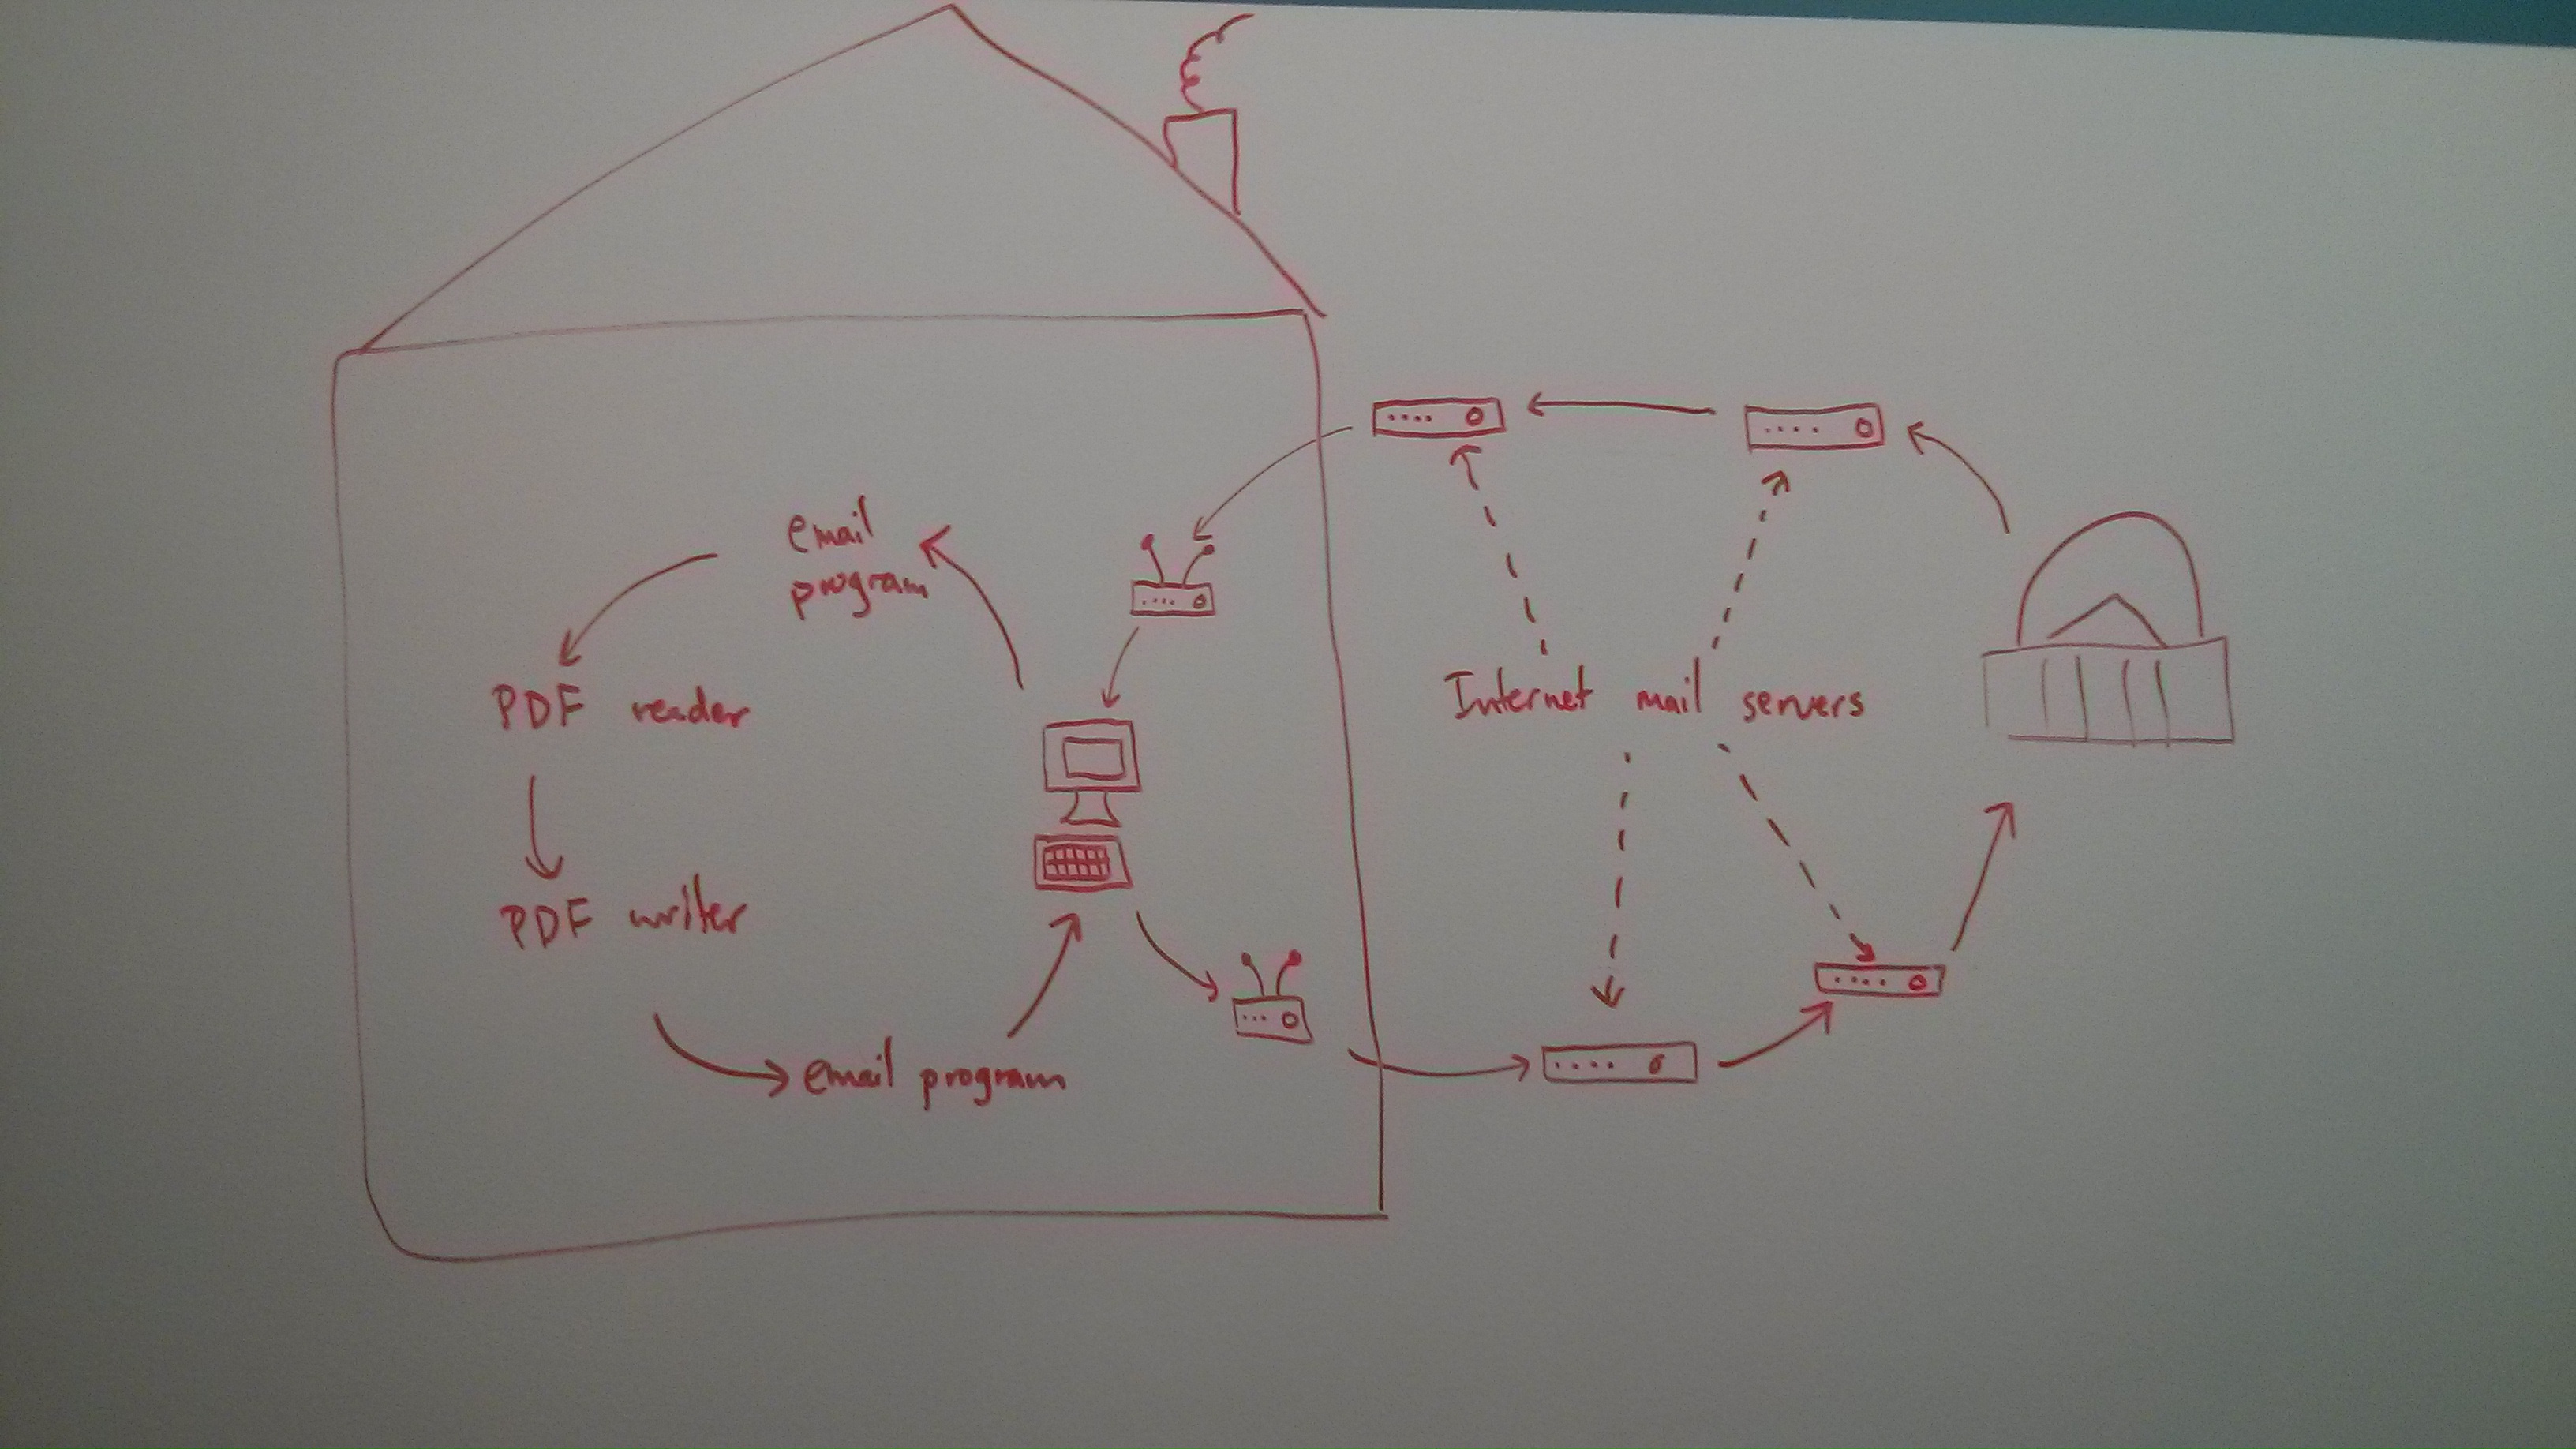 email
program
PDF reader
PDF writer
email program
Internet mail servers